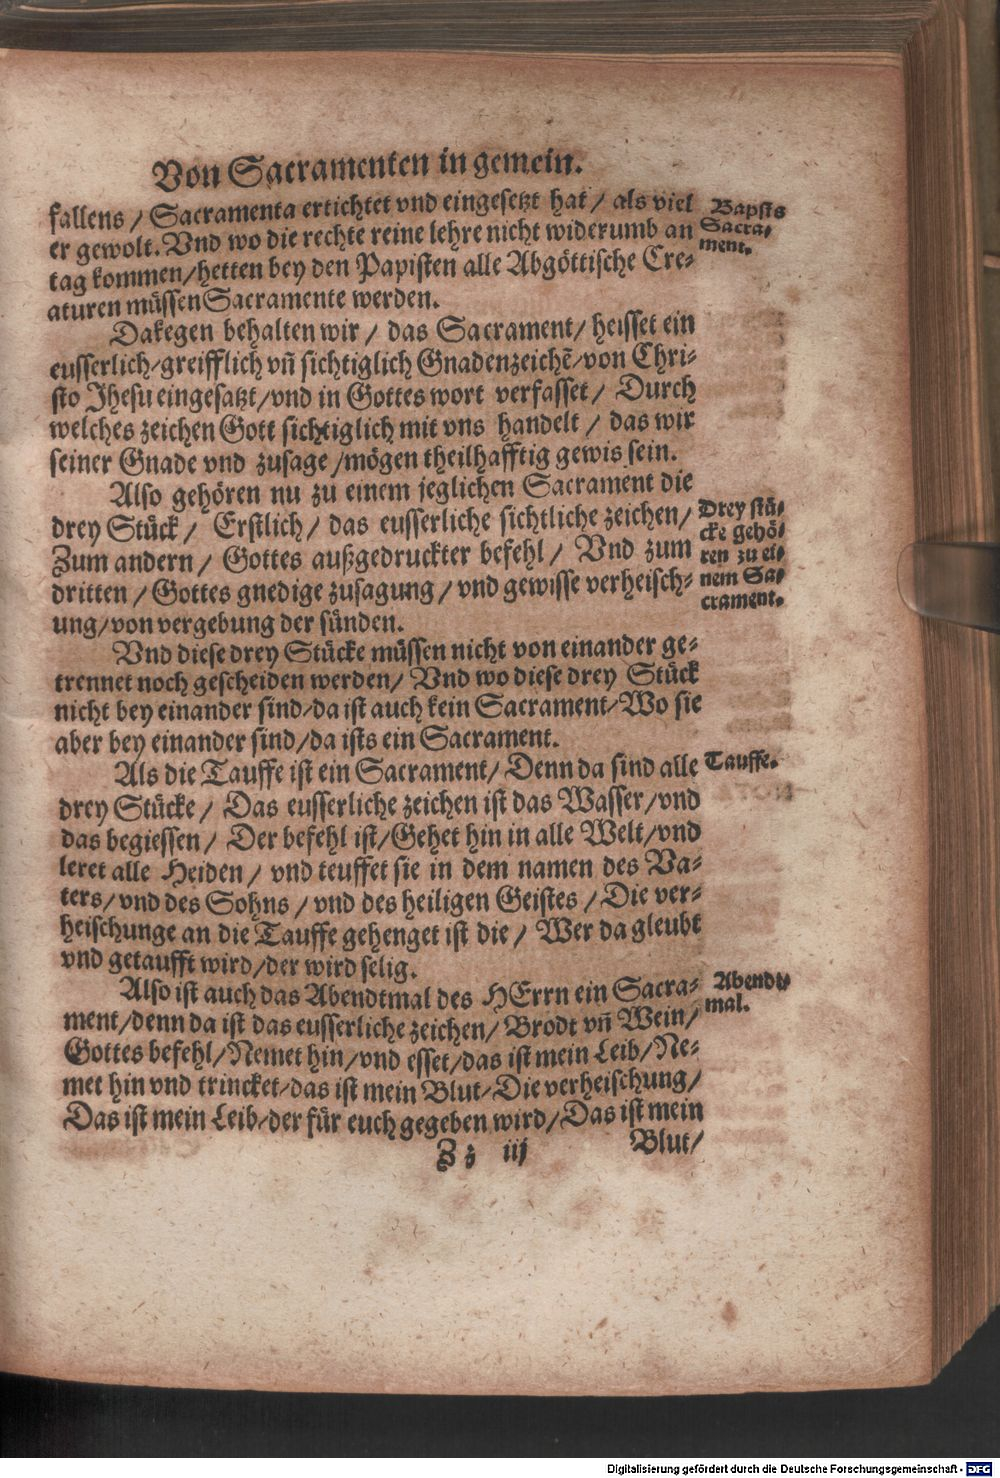 Von Sacramenten in gemein.
fallens / Sacramenta ertichtet vnd eingesetzt hat / als viel
er gewolt. Vnd wo die rechte reine lehre nicht widerumb an
tag kommen/hetten bey den Papisten alle Abgöttische Cre-
aturen müssen Sacramente werden.
Bapsts
Sacra-
ment.
Dakegen behalten wir / das Sacrament/ heisset ein
eusserlich/greifflich vn̄ sichtiglich Gnadenzeichē/von Chri-
sto Jhesu eingesatzt/vnd in Gottes wort verfasset / Durch
welches zeichen Gott sichtiglich mit vns handelt / das wir
seiner Gnade vnd zusage /mögen theilhafftig gewis sein.
Also gehören nu zu einem jeglichen Sacrament die
drey Stück / Erstlich / das eusserliche sichtliche zeichen/
Zum andern / Gottes außgedruckter befehl / Vnd zum
dritten / Gottes gnedige zusagung / vnd gewisse verheisch-
ung/von vergebung der sünden.
Drey stü-
cke gehö-
ren zu ei-
nem Sa-
crament.
Vnd diese drey Stücke müssen nicht von einander ge-
trennet noch gescheiden werden/ Vnd wo diese drey Stück
nicht bey einander sind/da ist auch kein Sacrament/Wo sie
aber bey einander sind/da ists ein Sacrament.
Als die Tauffe ist ein Sacrament/ Denn da sind alle
drey Stücke / Das eusserliche zeichen ist das Wasser/vnd
das begiessen / Der befehl ist/Gehet hin in alle Welt/vnd
leret alle Heiden / vnd teuffet sie in dem namen des Va-
ters/vnd des Sohns / vnd des heiligen Geistes / Die ver-
heischunge an die Tauffe gehenget ist die / Wer da gleubt
vnd getaufft wird/der wird selig.
Tauffe.
Also ist auch das Abendtmal des HErrn ein Sacra-
ment/denn da ist das eusserliche zeichen/ Brodt vn̄ Wein/
Gottes befehl/Nemet hin/vnd esset/das ist mein Leib/Ne-
met hin vnd trincket/das ist mein Blut/Die verheischung/
Das ist mein Leib/der für euch gegeben wird/Das ist mein
Abendt-
mal.
Zz iij
Blut/
Digitalisierung gefördert durch die Deutsche Forschungsgemeinschaft - DFG